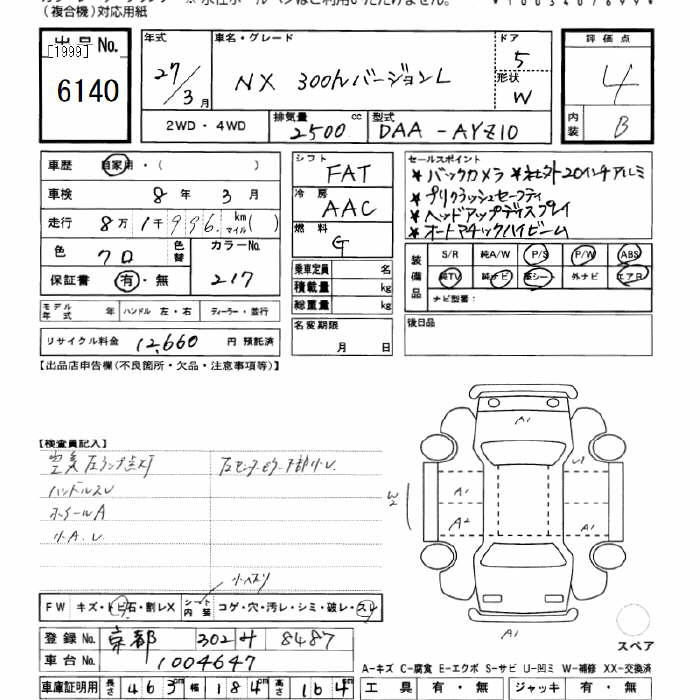 (複合機)対応用紙
出品No.
[1999]
6140
年式 27/3月
車名・グレード NX 300hバージョンL
ドア 5
形状 W
2WD・4WD
排気量 2500 cc
型式 DAA-AYZ10
評価点 4
内装 B
車歴 自家用・( )
車検 8年 3月
走行 8万 1千 996 km マイル( )
色 クロ 色替 カラーNo. 217
保証書 有・無
モデル年式 年 ハンドル 左・右 ディーラー・並行
リサイクル料金 12,660 円 預託済
シフト FAT
冷房 AAC
燃料 G
乗車定員 名
積載量 kg
総重量 kg
名変期限 月 日
セールスポイント
★バックカメラ ★社外20インチアルミ
★プリクラッシュセーフティ
★ヘッドアップディスプレイ
★オートマチックハイビーム
装備品 S/R 純A/W P/S P/W ABS
純TV 純ナビ 革シート 外ナビ エアB
ナビ型番:
後日品
【出品店申告欄(不良箇所・欠品・注意事項等)】
【検査員記入】
ハンドルスレ
ホイールA
小A.U
FW キズ・トビ石・割レX シート内装 コゲ・穴・汚レ・シミ・破レ・スレ
登録No. 京都 302 サ 8487
車台No. 1004647
車庫証明用 長さ 463 幅 184 高さ 164
A1
A1
A2
W2
U1
U1
A1
スペア
A-キズ C-腐食 E-エクボ S-サビ U-凹ミ W-補修 XX-交換済
工具 有・無 ジャッキ 有・無